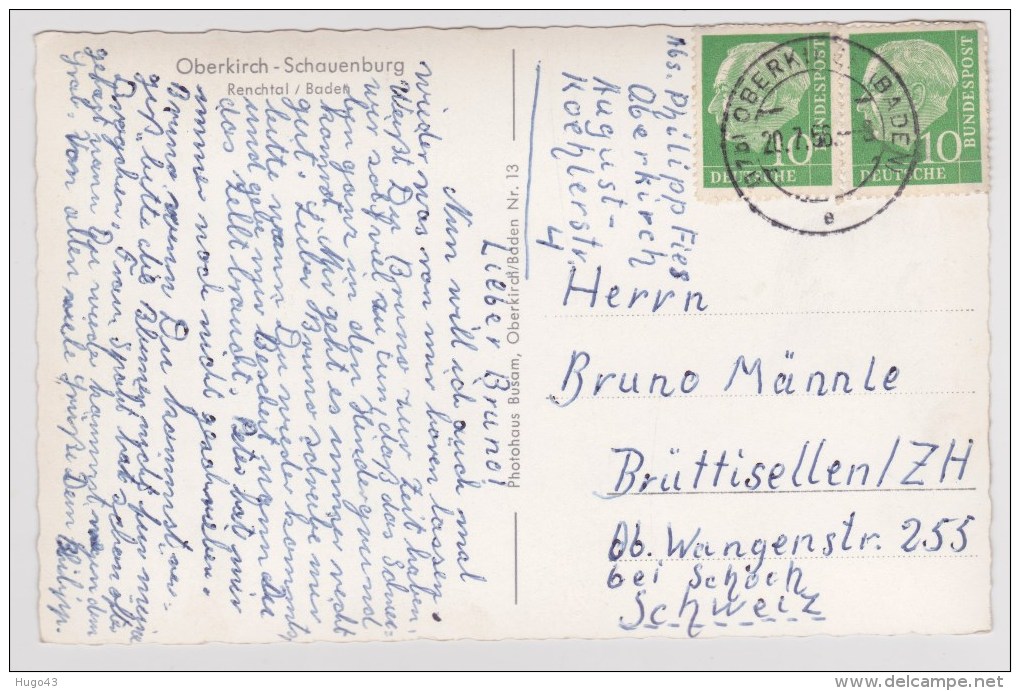 Oberkirch - Schauenburg
Renchtal / Baden
Photohaus Busam, Oberkirch/Baden Nr. 13
Lieber Bruno!
Nun will ich auch mal
wieder was von mir hören lassen.
Wirst Du Bruno zur Zeit haben
wir so viel zu tun, daß das Schrei-
ben ganz in den Hindergrund
kommt. Mir geht es immer recht
gut. Lieber Bruno schreibe mir
bitte wann Du wieder kommst
und gebe mir Bescheid wenn Du
das Zelt brauchst. Peter hat mir
immer noch nicht geschrieben.
Bruno, wenn Du kommst, ver-
giß bitte die Blumen nicht für mein
Frau Spath hat schon öfter
gefragt wann Du wieder kommst
Grab. Von allen viele Grüße Dein Philipp.
Abs. Philipp Fies
Oberkirch
August-
Koehlerstr.
4
OBERKIRCH (BADEN)
20.7.56.-8
e
10
DEUTSCHE
BUNDESPOST
10
DEUTSCHE
BUNDESPOST
Herrn
Bruno Männle
Brüttisellen/ZH
Ob. Wangenstr. 255
bei Schoch
Schweiz
Hugo43
delcampe.net